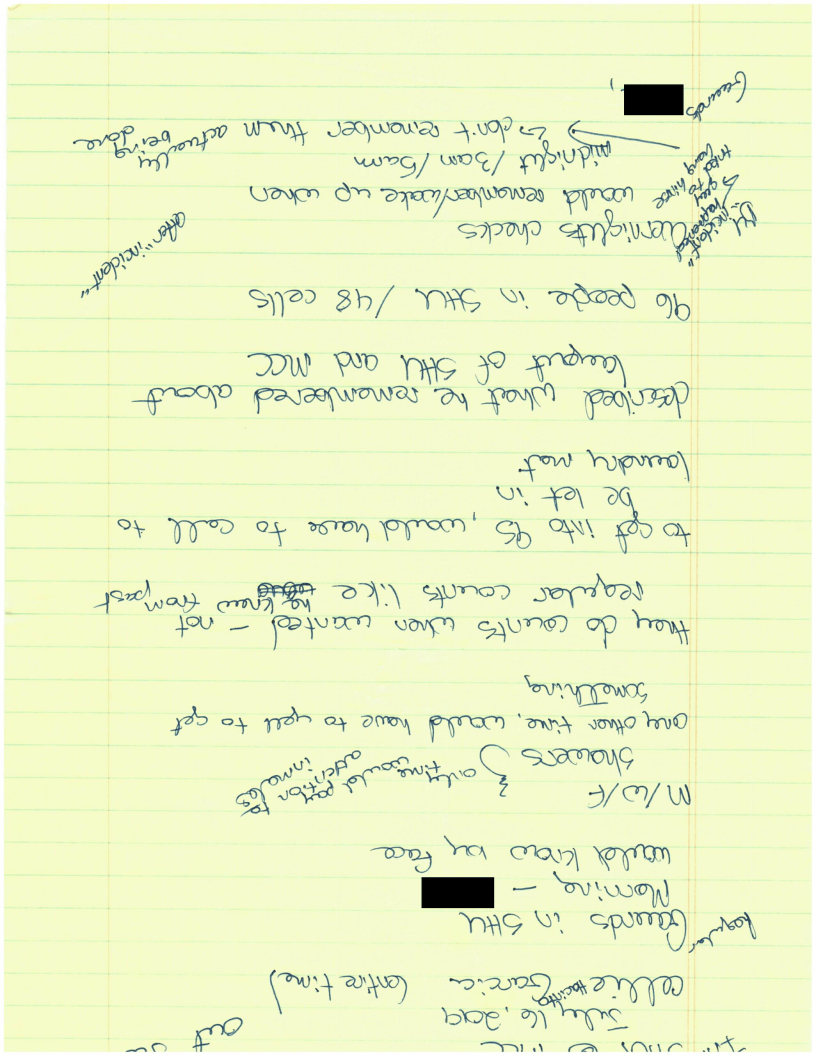 July 16, 2019 out
cellie Garcia (entire time)
Regular Guards in SHU
Morning -
would know by face
M/W/F
Showers } only time would pay attention to inmates
any other time, would have to yell to get
something
they do counts when wanted - not
regular counts like he knew from past
to get into 9S, would have to call to
be let in
laundry mat
described what he remembered about
layout of SHU and MCC
96 people in SHU / 48 cells
after "incident"
Overnights checks
would remember/wake up when
midnight / 3am / 5am
↳ don't remember them actually being done
"incident"
↳ guy
tried to
hang
Guards